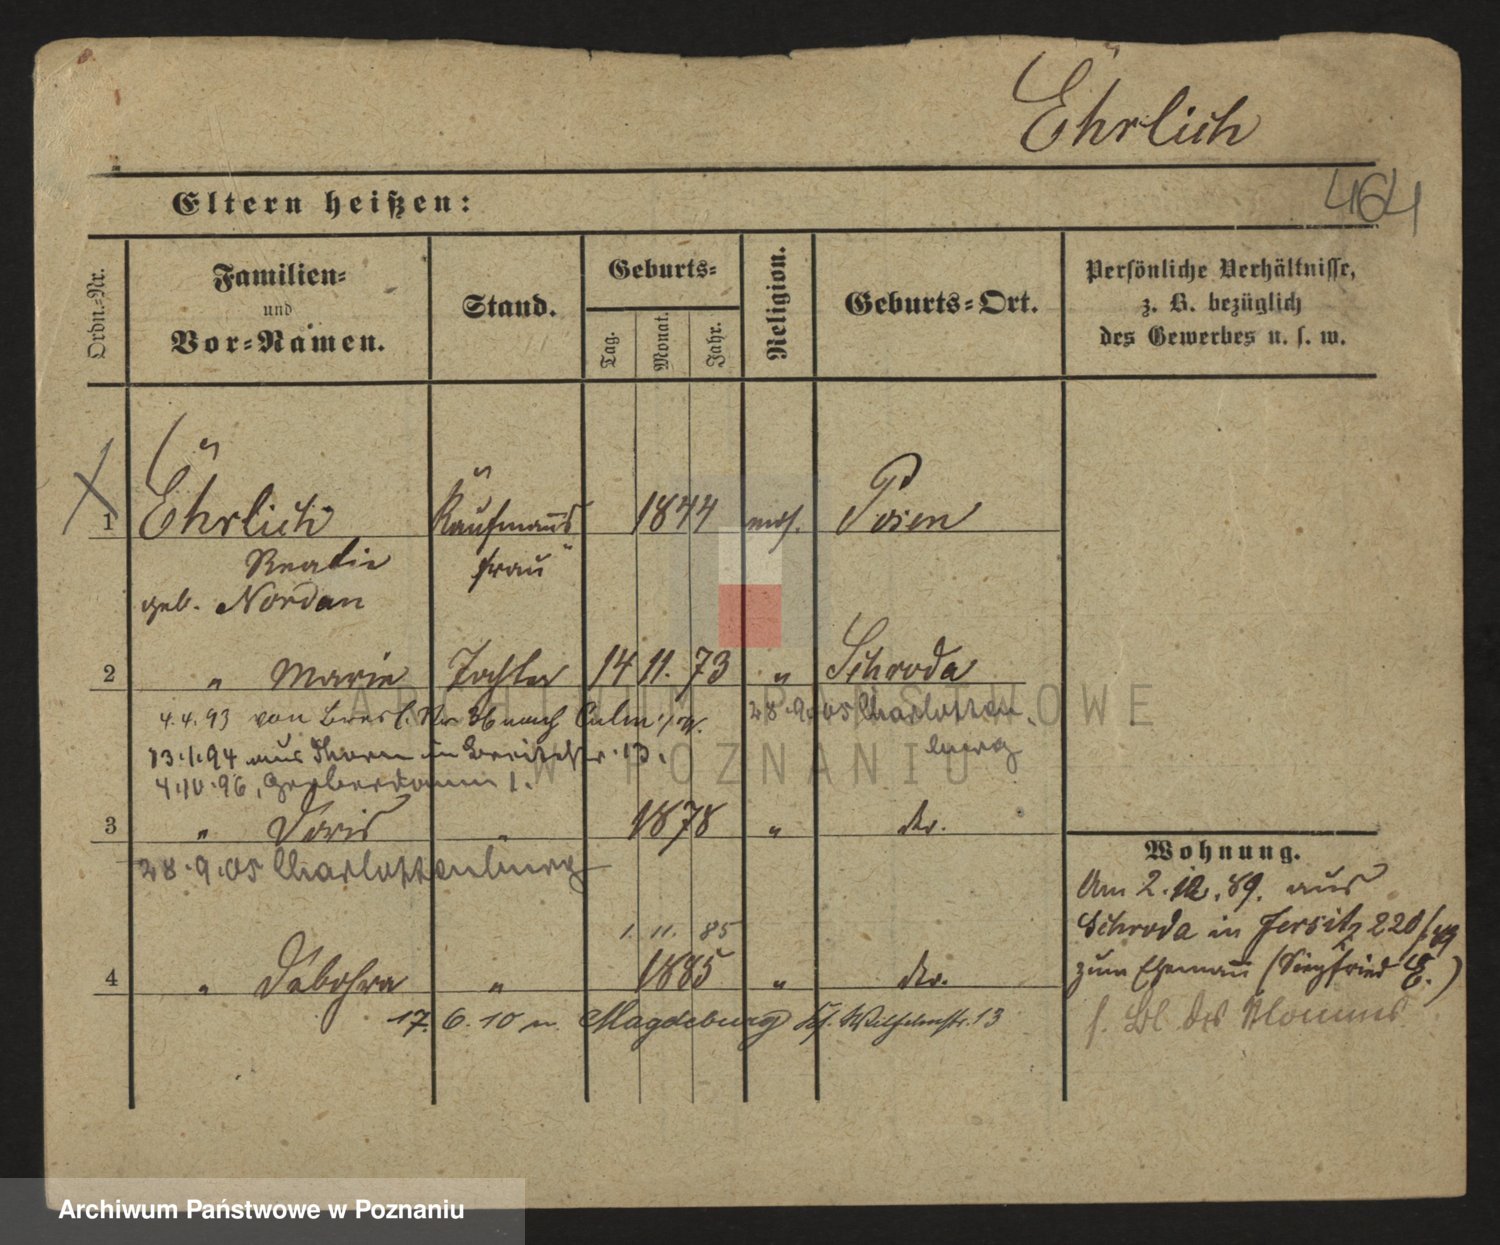 Ehrlich
464
Eltern heißen:
Ordn.-Nr.
Familien-
und
Vor-Namen.
Stand.
Geburts-
Tag.
Monat.
Jahr.
Religion.
Geburts-Ort.
Persönliche Verhältnisse,
z. B. bezüglich
des Gewerbes u. s. w.
1 Ehrlich Kaufmanns 1844 mos. Posen
frau
geb. Nordan
2 " Marie Tochter 14 11. 73 " Schroda
4.4.93 von Bresl. nach Culm
28.9.05 Charlotten
burg
13.1.94 aus Thorn in Breitestr. 13.
4.10.96, Gerberdamm 1.
3 " Doris " 1878 " do.
28.9.05 Charlottenburg
1. 11. 85
4 " Debohra " 1885 " do.
17. 6. 10 n. Magdeburg Wilhelmstr. 13
Wohnung.
Am 2.12.89. aus
Schroda in Jersitz 220/
zum Ehemann (Siegfried E.)
s. Bl. des Mannes
ARCHIWUM PAŃSTWOWE
W POZNANIU
Archiwum Państwowe w Poznaniu